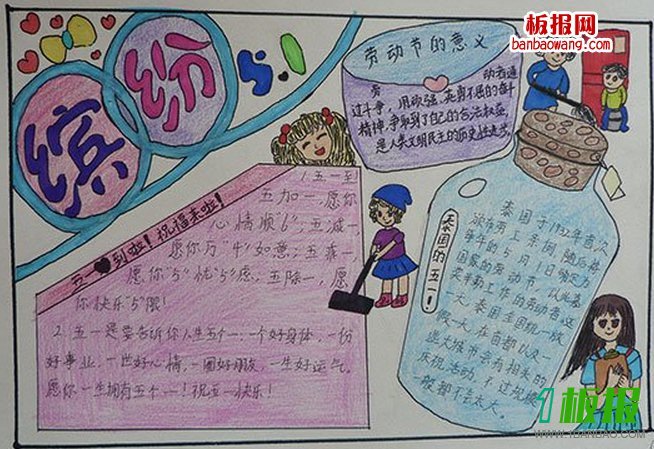 板报网
banbaowang.com
缤
纷
5.1
劳动节的意义
劳 动者通
过斗争，用顽强、英勇不屈的奋斗
精神，争取到了自己的合法权益，
是人类文明民主的历史性进步。
五一到啦！祝福来啦！
1.五一到
五加一，愿你
心情顺"6"；五减一，
愿你万"4"如意；五乘一，
愿你"5"忧"5"虑；五除一，愿
你快乐"5"限！
2.五一是要告诉你人生五个一：一个好身体，一份
好事业，一世好心情，一圈好朋友，一生好运气。
愿你一生拥有五个一！祝五一快乐！
泰国的五一！
泰国于1932年首次
颁布劳工条例，随后将
每年的5月1日确定为
国家的劳动节，以此慕
来辛勤工作的劳动者这
一天，泰国全国统一放
假一天，在首都以及一
些大城市会有相关的
庆祝活动，不过规模
一般都不会太大。
1板报
WWW.1BANBAO.COM